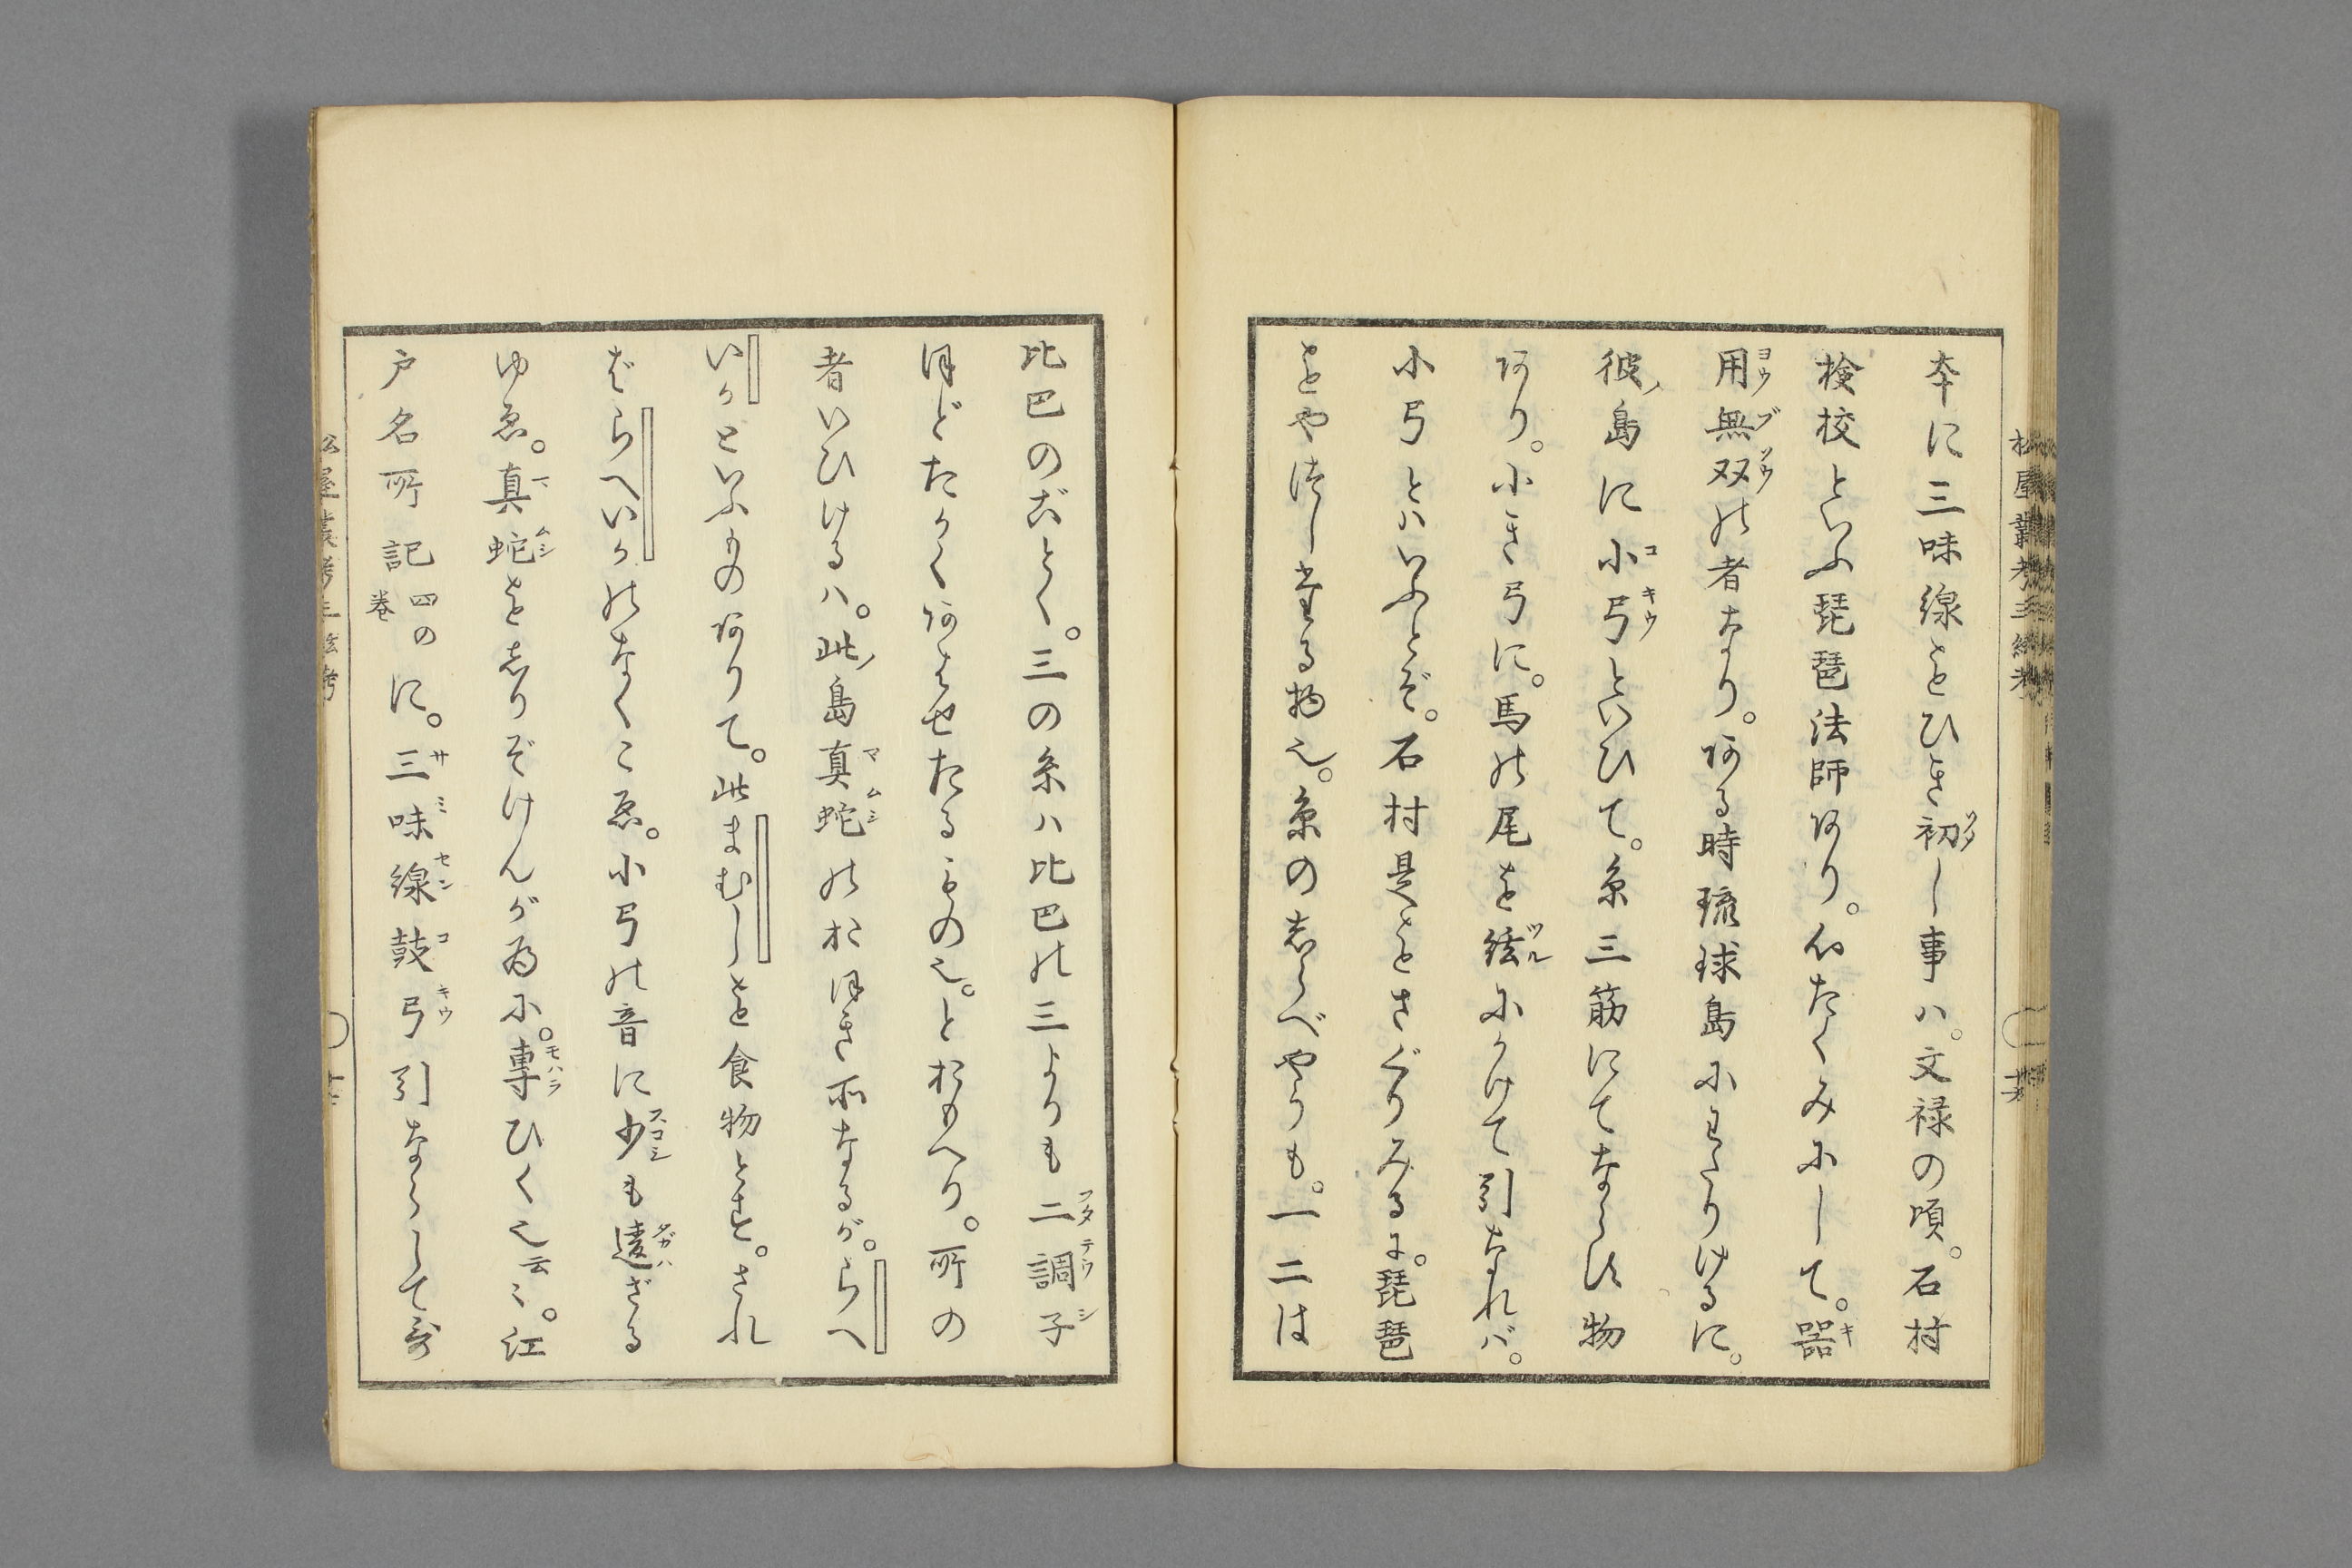 本に三味線をひき初し事ハ。文禄の頃。石村
検校といふ琵琶法師あり。心たくみにして。器
用無双の者なり。ある時琉球島にわたりけるに。
彼ノ島に小弓といひて。糸三筋にてならす物
あり。小き弓に。馬の尾を絃にかけて引なれバ。
小弓とハいふとぞ。石村是をさぐりみるに。琵琶
をやつしたる物也。糸のしらべやうも。一二は
比巴のごとく。三の糸ハ比巴の三よりも二調子
ほどたかくあはせたるもの也。とおもへり。所の
者いひけるハ。此ノ島真蛇のおほき所なるが。らへ
いかといふものありて。此まむしを食物とす。され
ばらへいかのなくこゑ。小弓の音に少も違ざる
ゆゑ。真蛇をしりぞけんが為に。専ひく也云〻。江
戸名所記四の巻に。三味線鼓弓引ならして哥
松屋叢考三絃考